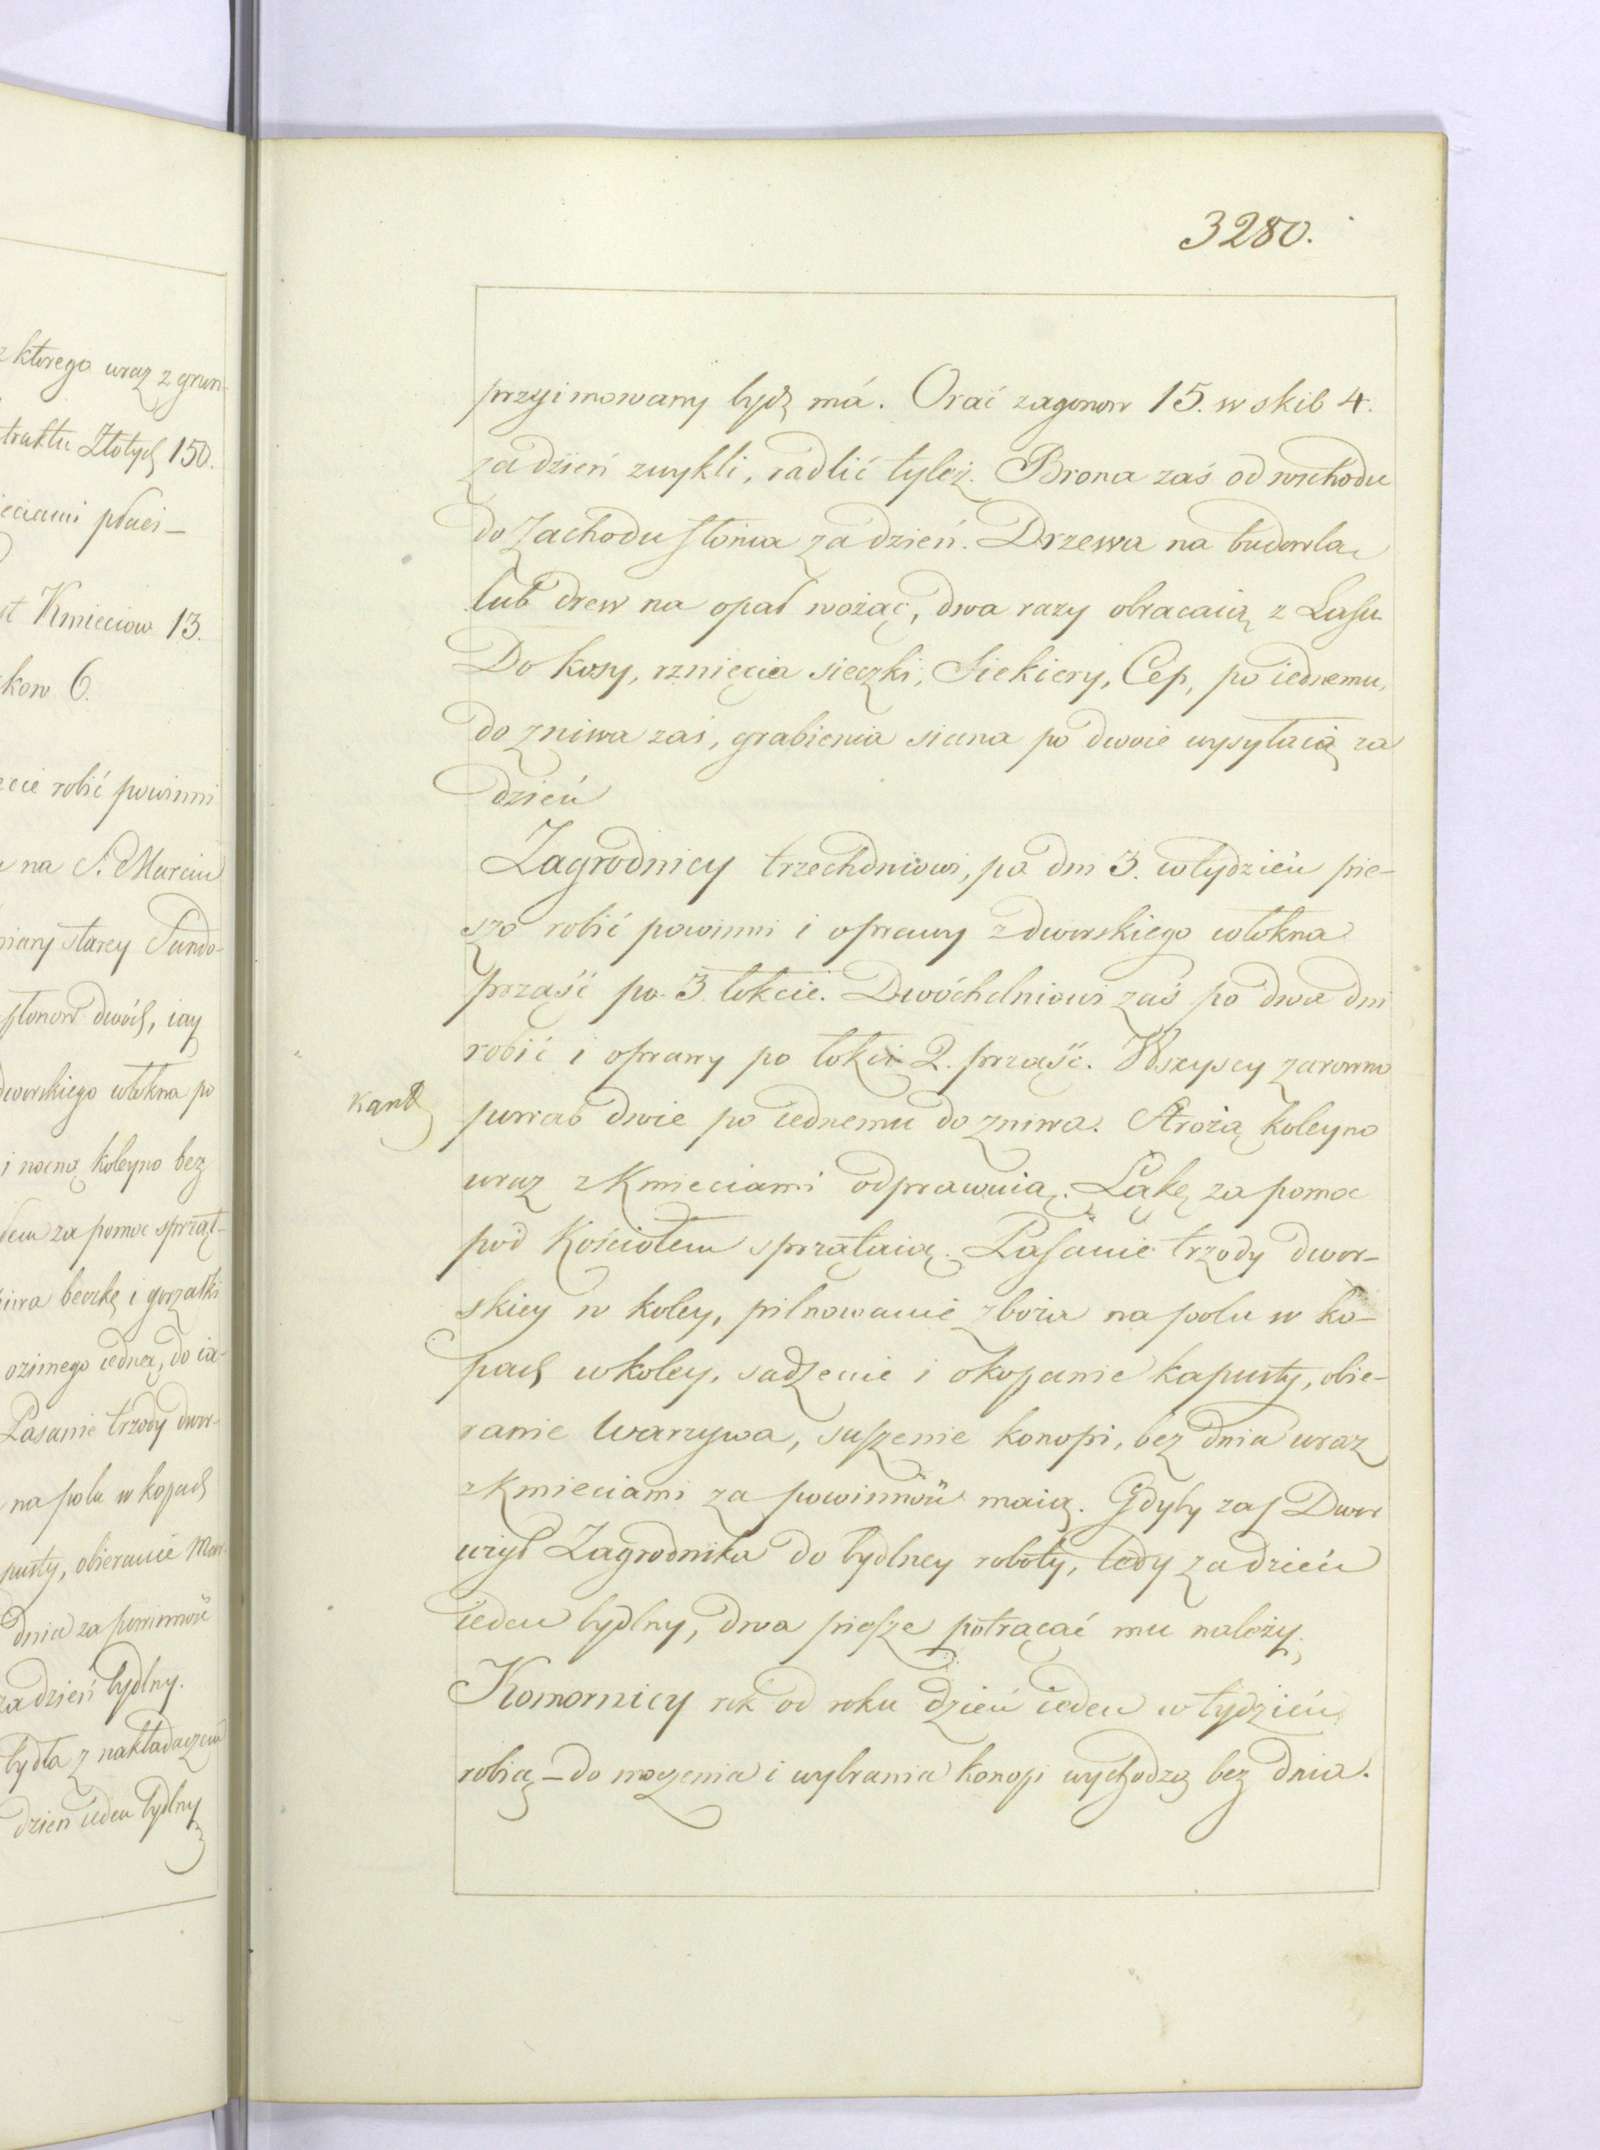 z ktorego wraz z grun-
traktu Złotych 150.
płaci -
Kmieciow 13.
kow 6.
robić powinni
na S. Marcin
miary starey Sando-
dwóch, iay
dworskiego włokna po
i nocną koleyno bez
za pomoc sprząt-
beczkę i gorzałki
ozimego iedną, do ia-
Pasanie trzody dwor-
na polu w kopach
pusty, obieranie War-
dnia za powinność
za dzień bydlny.
bydła z nakładaczem
dzień ieden bydlny
3280.
przyimowany bydź má. Orać zagonow 15. w skib 4.
za dzień zwykli, radlić tyleż. Brona zaś od wschodu
do Zachodu słonca za dzień. Drzewa na budowlą
lub drew na opał wożąc, dwa razy obracaią z Lasu
Do kosy, rznięcia sieczki, Siekiery, Cep, po iednemu,
do zniwa zas, grabienia siana po dwoie wysyłaią za
dzień
Zagrodnicy trzechdniowi, po dni 3. w tydzień pie-
szo robić powinni i oprawy z dworskiego włokna
prząść po 3 łokcie. Dwóchdniowi zaś po dwa dni
robić i oprawy po łokci 2. prząść. Wszyscy zarowno
powab dwie po iednemu do zniwa. Strożą koleyno
wraz z Kmieciami odprawuią. Łąkę za pomoc
pod Kościołem sprzątaią. Pasanie trzody dwor-
skiey w koley, pilnowanie zboża na polu w ko-
pach w koley, sadzenie i okopanie kapusty, obie-
ranie Warzywa, suszenie konopi, bez dnia wraz
z Kmieciami za powinność maią. Gdyby zaś Dwor
użył Zagrodnika do bydlney roboty, tedy za dzień
ieden bydlny, dwa piesze potrącać mu należy.
Komornicy rok od roku dzień ieden w tydzień
robią - do moczenia i wybrania konopi wychodzą bez dnia.